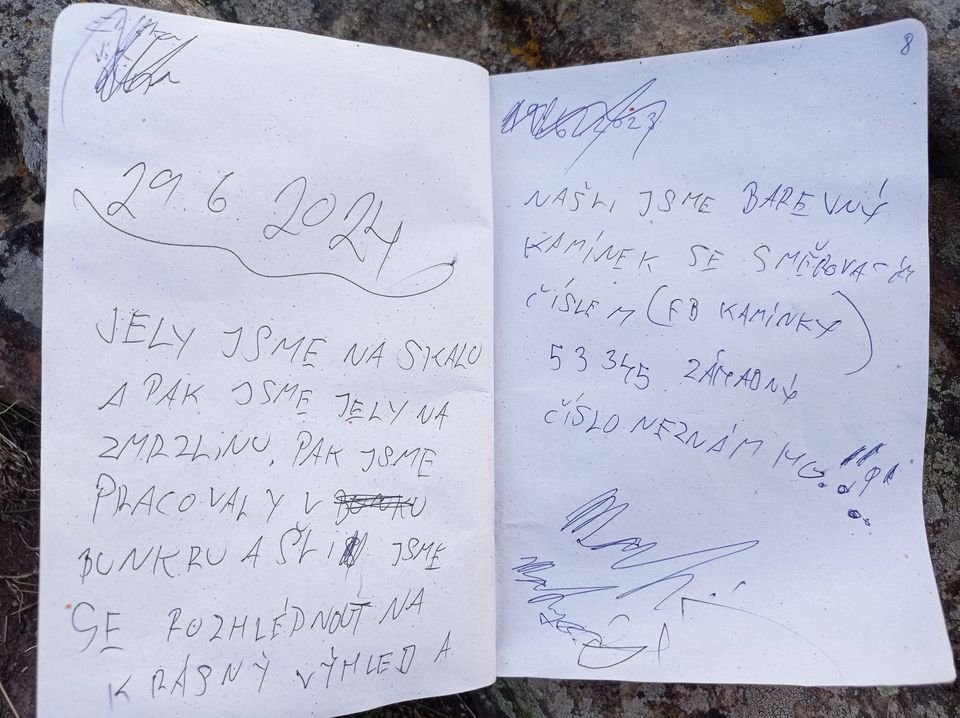 29.6 2024
JELY JSME NA SKALU
A PAK JSME JELY NA
ZMRZLINU. PAK JSME
PRACOVALY V
BUNKRU A ŠLI JSME
SE ROZHLÉDNOUT NA
KRÁSNÝ VÝHLED A
8
NAŠLI JSME BAREVNÝ
KAMÍNEK SE SMĚROVACÍM
ČÍSLEM (FB KAMÍNKY)
53345 ZÁHADNÝ
ČÍSLO NEZNÁM HO